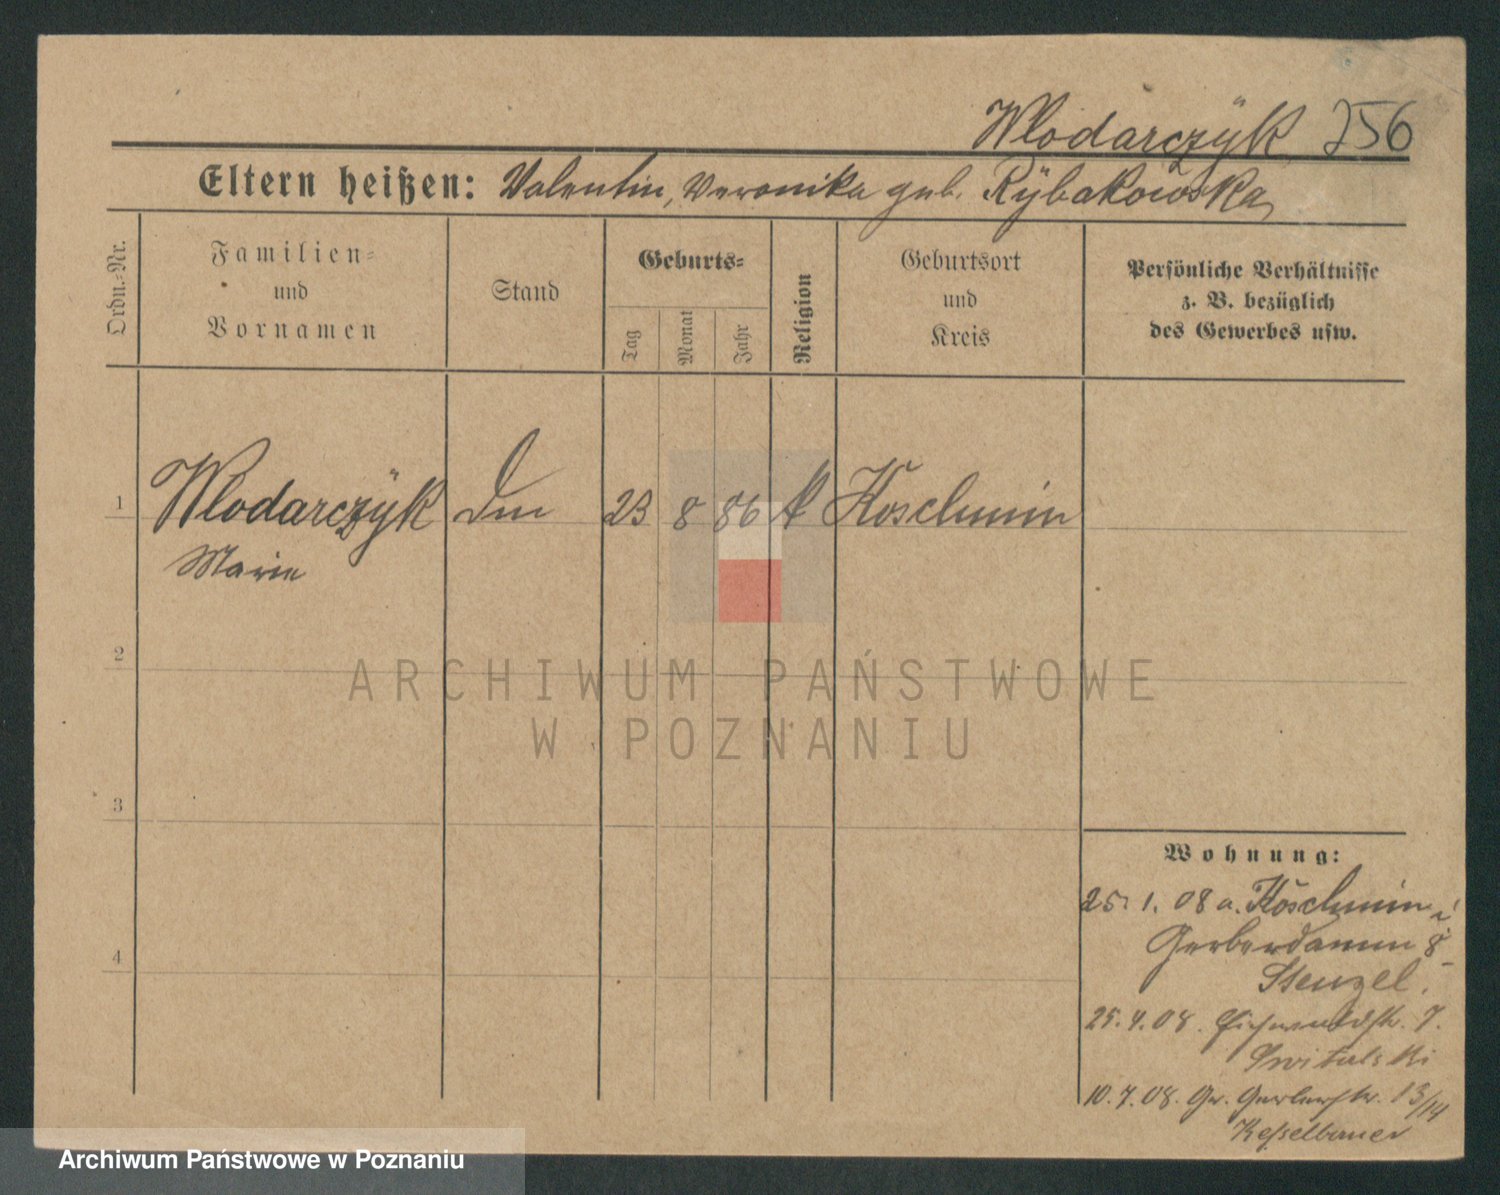 Wlodarczÿk 256
Eltern heißen: Valentin, Veronika geb. Rÿbakowska
Ordn.-Nr.
Familien-
und
Vornamen
Stand
Geburts-
Tag
Monat
Jahr
Religion
Geburtsort
und
Kreis
Persönliche Verhältnisse
z. B. bezüglich
des Gewerbes usw.
1 Wlodarczÿk 23 8 86 k Koschmin
Marie
2
3
4
ARCHIWUM PAŃSTWOWE
W POZNANIU
Wohnung:
25. 1. 08 a. Koschmin
Gerberdamm 8
Stenzel.
25. 4. 08. Eichwaldstr. 7.
Switalski
10. 7. 08. Gr. Gerberstr. 13/14
Archiwum Państwowe w Poznaniu